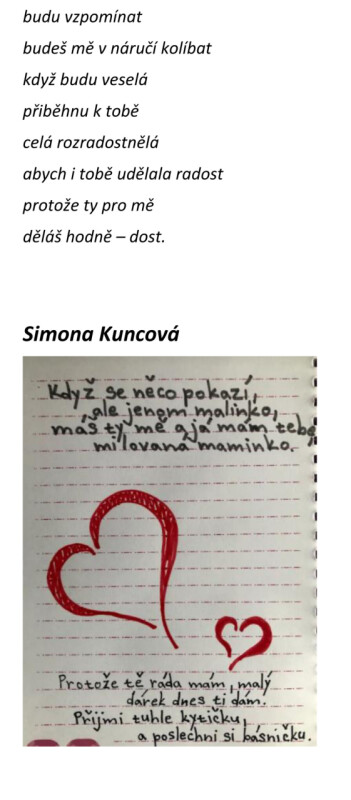 budu vzpomínat
budeš mě v náručí kolíbat
když budu veselá
přiběhnu k tobě
celá rozradostnělá
abych i tobě udělala radost
protože ty pro mě
děláš hodně – dost.
Simona Kuncová
Když se něco pokazí,
ale jenom malinko,
máš ty mě a já mám tebe,
milovaná maminko.
Protože tě ráda mám, malý
dárek dnes ti dám.
Přijmi tuhle kytičku,
a poslechni si básničku.